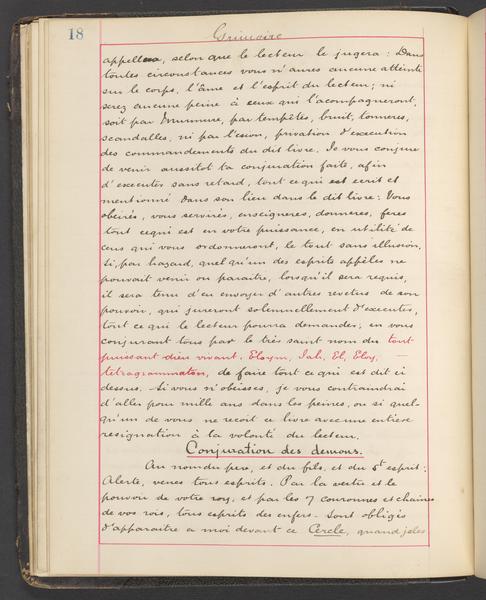 18
Grimoire
appellera, selon que le lecteur le jugera : Dans
toutes circonstances vous n'aures aucune atteinte
sur le corps, l'âme et l'esprit du lecteur ; ni
serez aucune peine à ceux qui l'acompagneront,
soit par murmure, par tempêtes, bruit, tonneres,
scandalles, ni par l'esion, privation d'execution
des commandements du dit livre. Je vous conjure
de venir aussitot ta conjuration faite, afin
d'executer sans retard, tout ce qui est ecrit et
mentionné dans son lieu dans le dit livre : Vous
obeirés, vous servirés, enseigneres, donneres, feres
tout cequi est en votre puissance, en utilité de
ceux qui vous ordonneront, le tout sans illusion,
Si, par hazard, quel qu'un des esprits appêles ne
pouvait venir ou paraitre, lorsqu'il sera requis,
il sera tenu d'en envoyer d'autres revetus de son
pouvoir, qui jureront solennellement d'executer,
tout ce qui le lecteur pourra demander ; en vous
conjurant tous par le très saint nom du tout
puissant dieu vivant. Eloym, Iah, El, Eloy, —
tetragrammaton, de faire tout ce qui est dit ci
dessus. Si vous n'obeisses, je vous contraindrai
d'aller pour mille ans dans les peines, ou si quel-
qu'un de vous ne recoit ce livre avec une entiere
resignation à la volonté du lecteur.
Conjuration des demons.
Au nom du pere, et du fils, et du St esprit :
Alerte, venes tous esprits. Par la vertu et le
pouvoir de votre roy, et par les 7 couronnes et chaines
de vos rois, tous esprits des enfers. Sont obligés
d'apparaitre a moi devant ce Cercle, quand je les